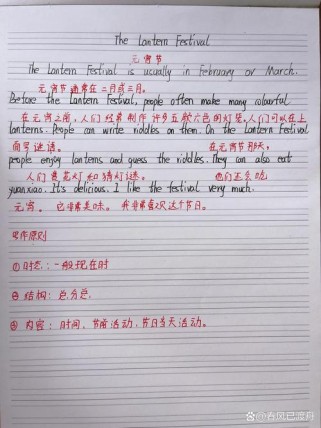 The Lantern Festival
元宵节
The Lantern Festival is usually in February or March.
元宵节通常在二月或三月。
Before the Lantern Festival, people often make many colourful
在元宵节之前，人们经常制作许多五颜六色的灯笼，人们可以在上
lanterns. People can write riddles on them. On the Lantern Festival
面写谜语。 在元宵节那天，
people enjoy lanterns and guess the riddles. They can also eat
人们赏花灯和猜灯谜。 他们还会吃
yuanxiao. It's delicious. I like the festival very much.
元宵。 它非常美味。 我非常喜欢这个节日。
写作原则
①时态：一般现在时
②结构：总分总.
③内容：时间、节前活动，节日当天活动。
@春风已渡舟